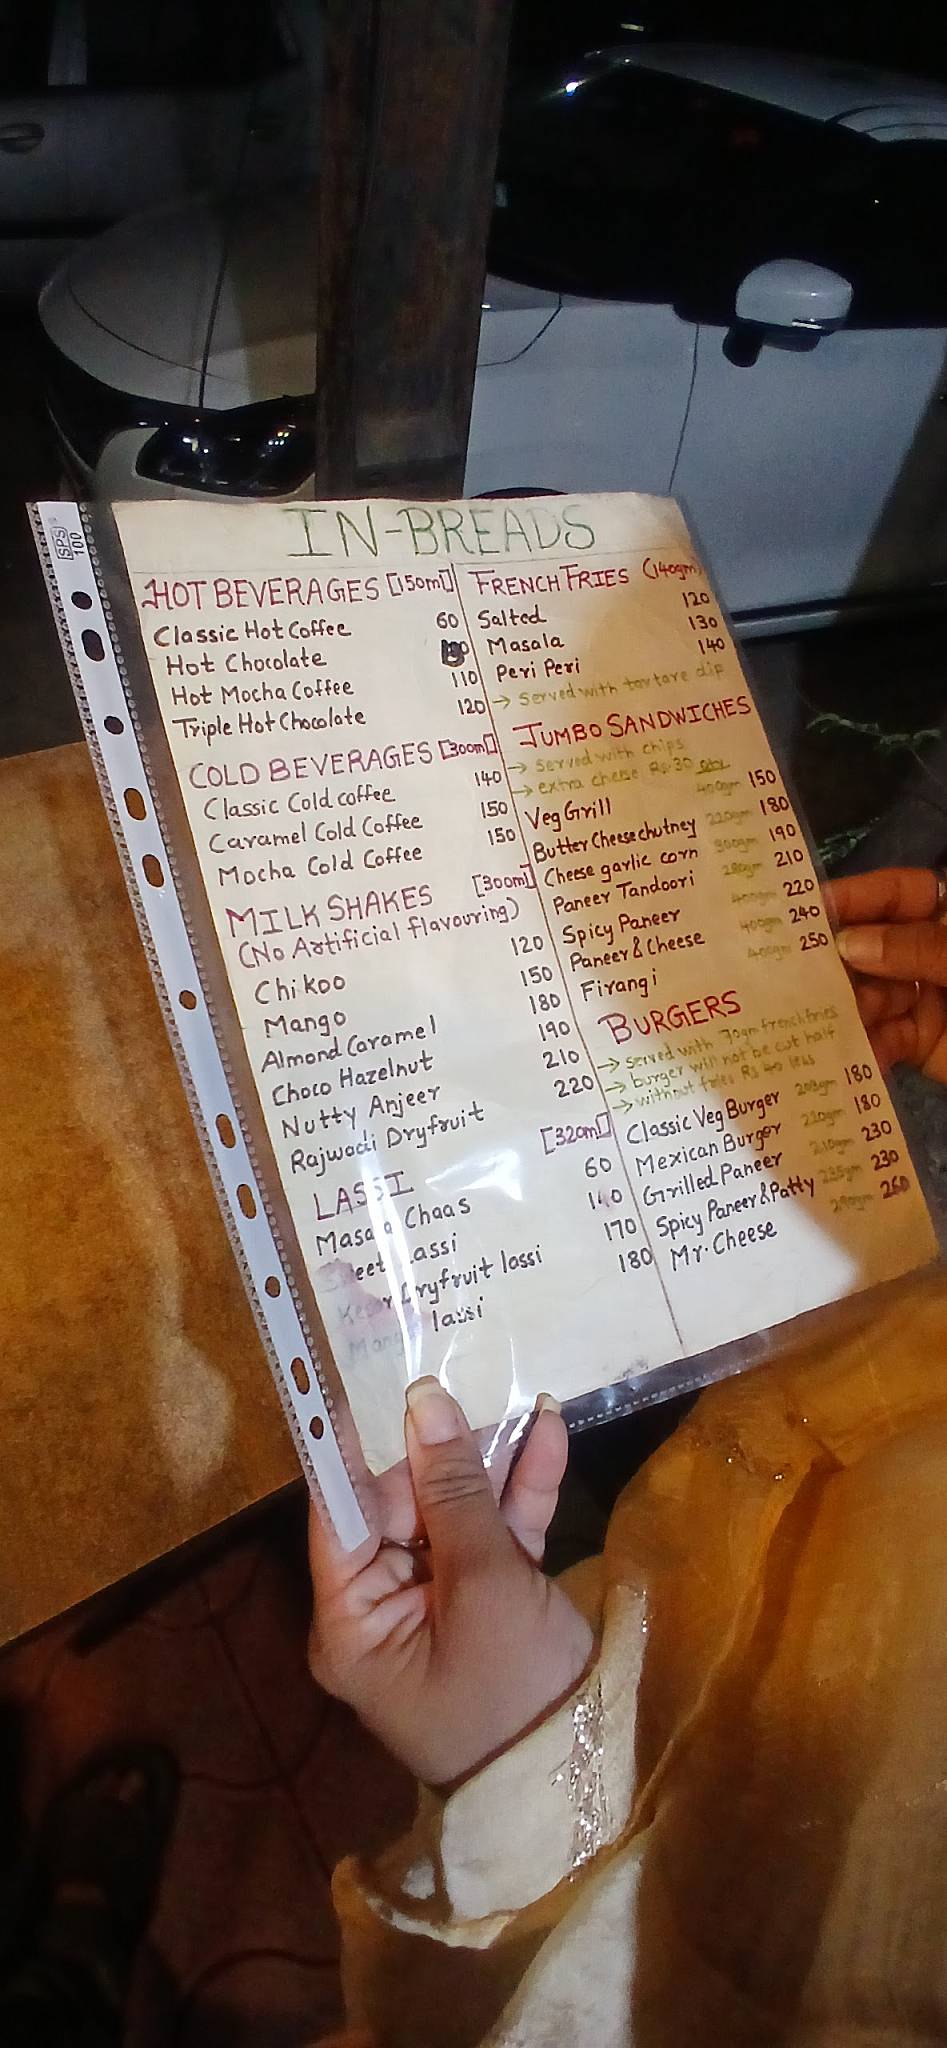 SPS
100
IN-BREADS
HOT BEVERAGES [150ml]
Classic Hot Coffee 60
Hot Chocolate
Hot Mocha Coffee 110
Triple Hot Chocolate 120
COLD BEVERAGES [300ml]
Classic Cold coffee 140
Caramel Cold Coffee 150
Mocha Cold Coffee 150
MILK SHAKES [300ml]
(No Artificial flavouring)
Chikoo 120
Mango 150
Almond Caramel 180
Choco Hazelnut 190
Nutty Anjeer 210
Rajwadi Dryfruit 220
LASSI [320ml]
Masala Chaas 60
Sweet Lassi 140
Kesar Dryfruit lassi 170
Mango lassi 180
FRENCH FRIES (140gm)
Salted 120
Masala 130
Peri Peri 140
→ Served with tartare dip
JUMBO SANDWICHES
→ served with chips
→ extra cheese Rs.30
Veg Grill 400gm 150
Butter Cheese chutney 220gm 180
Cheese garlic corn 300gm 190
Paneer Tandoori 280gm 210
Spicy Paneer 400gm 220
Paneer & Cheese 400gm 240
Firangi 400gm 250
BURGERS
→ served with 70gm french fries
→ burger will not be cut half
→ without fries Rs 40 less
Classic Veg Burger 180
Mexican Burger 220gm 180
Grilled Paneer 210gm 230
Spicy Paneer & Patty 235gm 230
Mr. Cheese 290gm 260